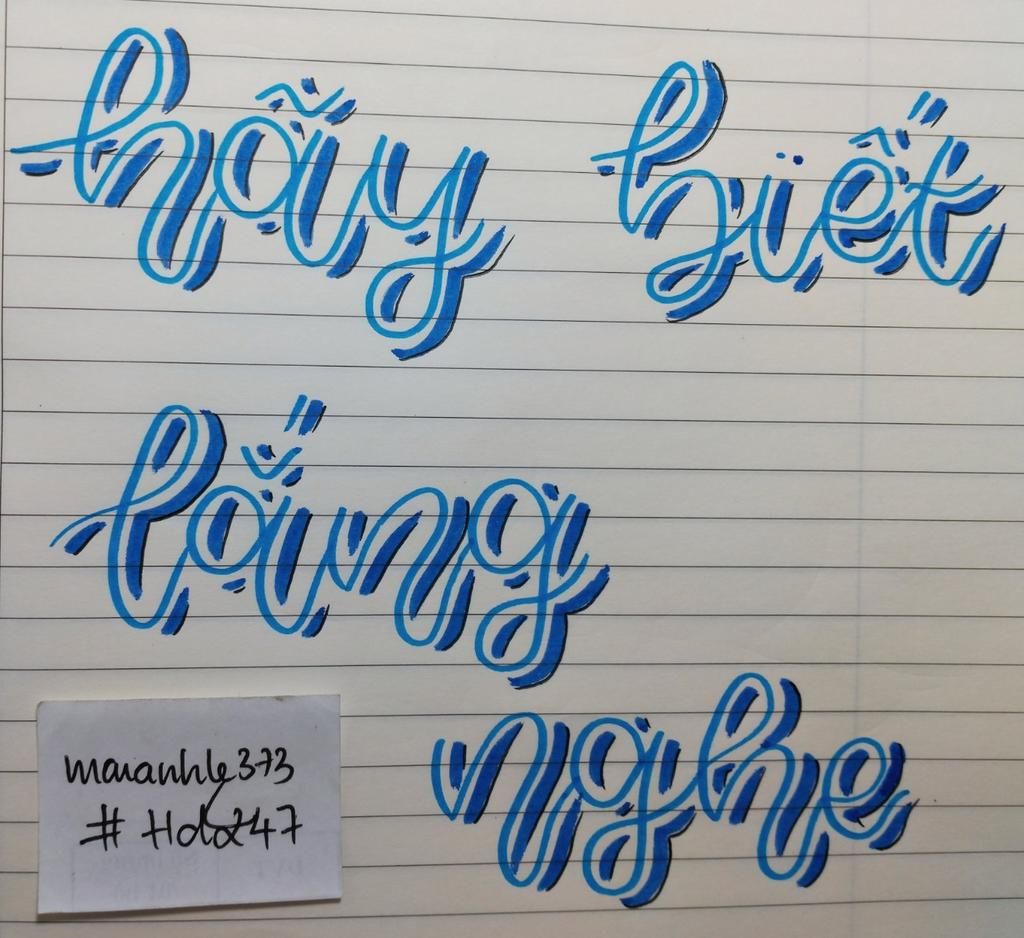 hãy biết
lắng
nghe
maianhle373
# Hda247